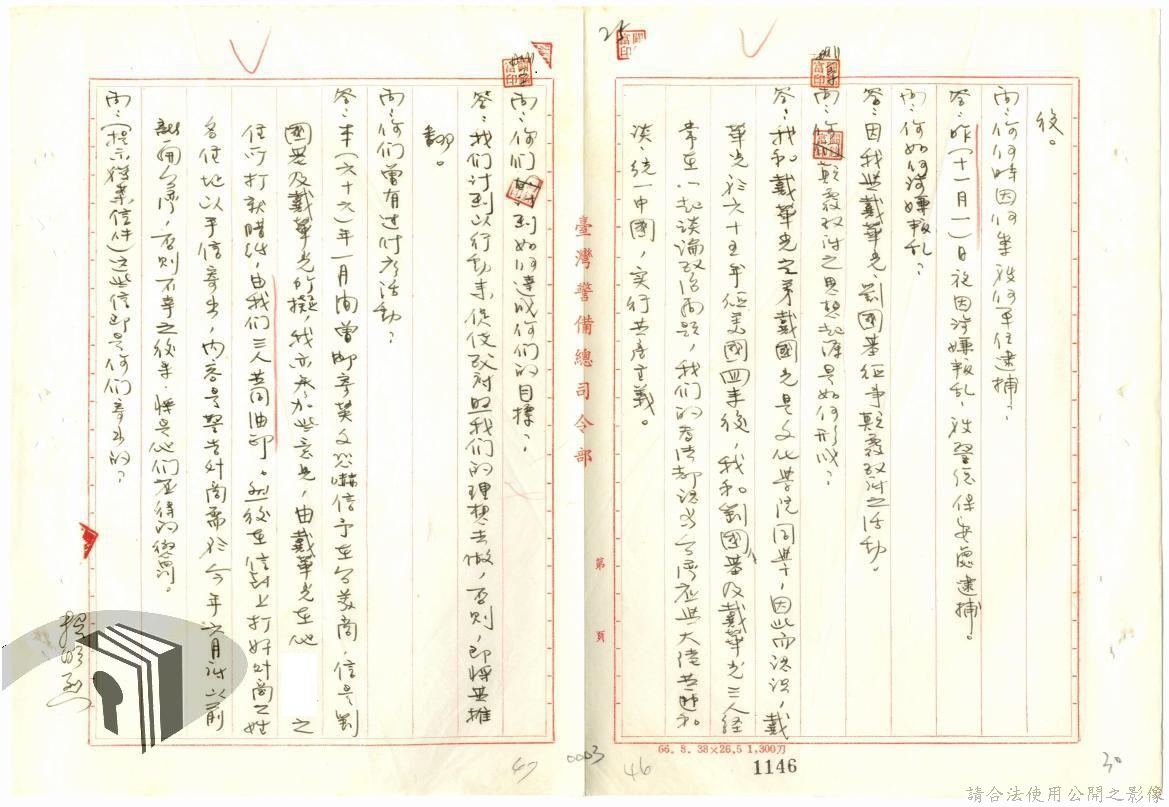 役。
問：你何時因何事被何單位逮捕？
答：昨(十一月一)日被因涉嫌叛乱，被警總保安處逮捕。
問：你如何涉嫌叛乱？
答：因我與戴華光、劉国基從事顛覆政府之活動。
問：你顛覆政府之思想起源是如何形成？
答：我和戴華光之弟戴國光是文化學院同學，因此而認识，戴
華光於六十五年從美國回來後，我和劉國基及戴華光三人經
常在一起談論政治問題，我们的看法都認為台湾应與大陸共匪和
談，統一中國，实行共産主義。
臺灣警備總司令部
第 頁
66. 8. 38×26.5 1,300刀
1146
46
30
25
問：你们討到如何達成你们的目標？
答：我们讨到以行動來促使政府照我们的理想去做，否則，即將其推
翻。
問：你们曾有過什么活動？
答：本(六十六)年一月間曾郵寄英文恐嚇信予在台美商，信是劉
國基及戴華光所擬，我亦參加些意見，由戴華光在他 之
住所打就腊紙，由我们三人共同油印。然後在信封上打好外商之姓
名住地以手信寄出，內容是警告外商需於今年六月底以前
離開台湾，否則不幸之後果，將是他们应得的懲罰。
問：(提示獲案信件)这些信即是你们寄出的？
47
0003
請合法使用公開之影像